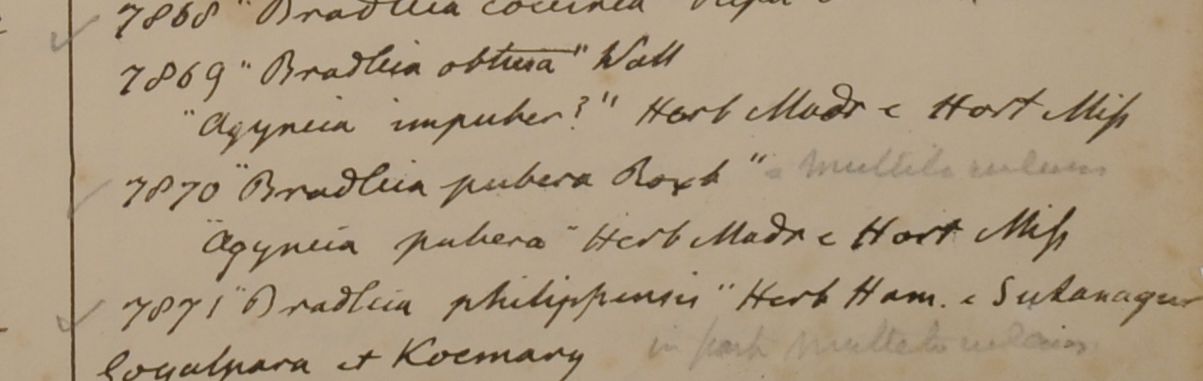 7868 "Bradleia coccinea
7869 "Bradleia obtusa" Wall
"Agyneia impuber?" Herb Madr e Hort Miss
7870 "Bradleia pubera Roxb"
"Agyneia pubera" Herb Madr e Hort Miss
7871 "Bradleia philippensis" Herb Ham. e Sukanagur
Goyalpara et Koemary